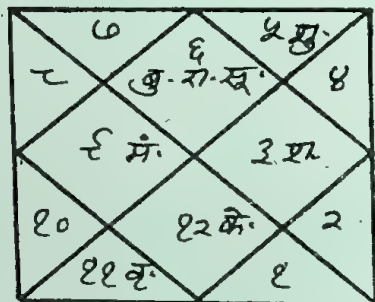 ७ ६ ५ शु.
८ बु. रा. सू. ४
९ मं. ३ श
१० १२ के. २
११ बृ. १